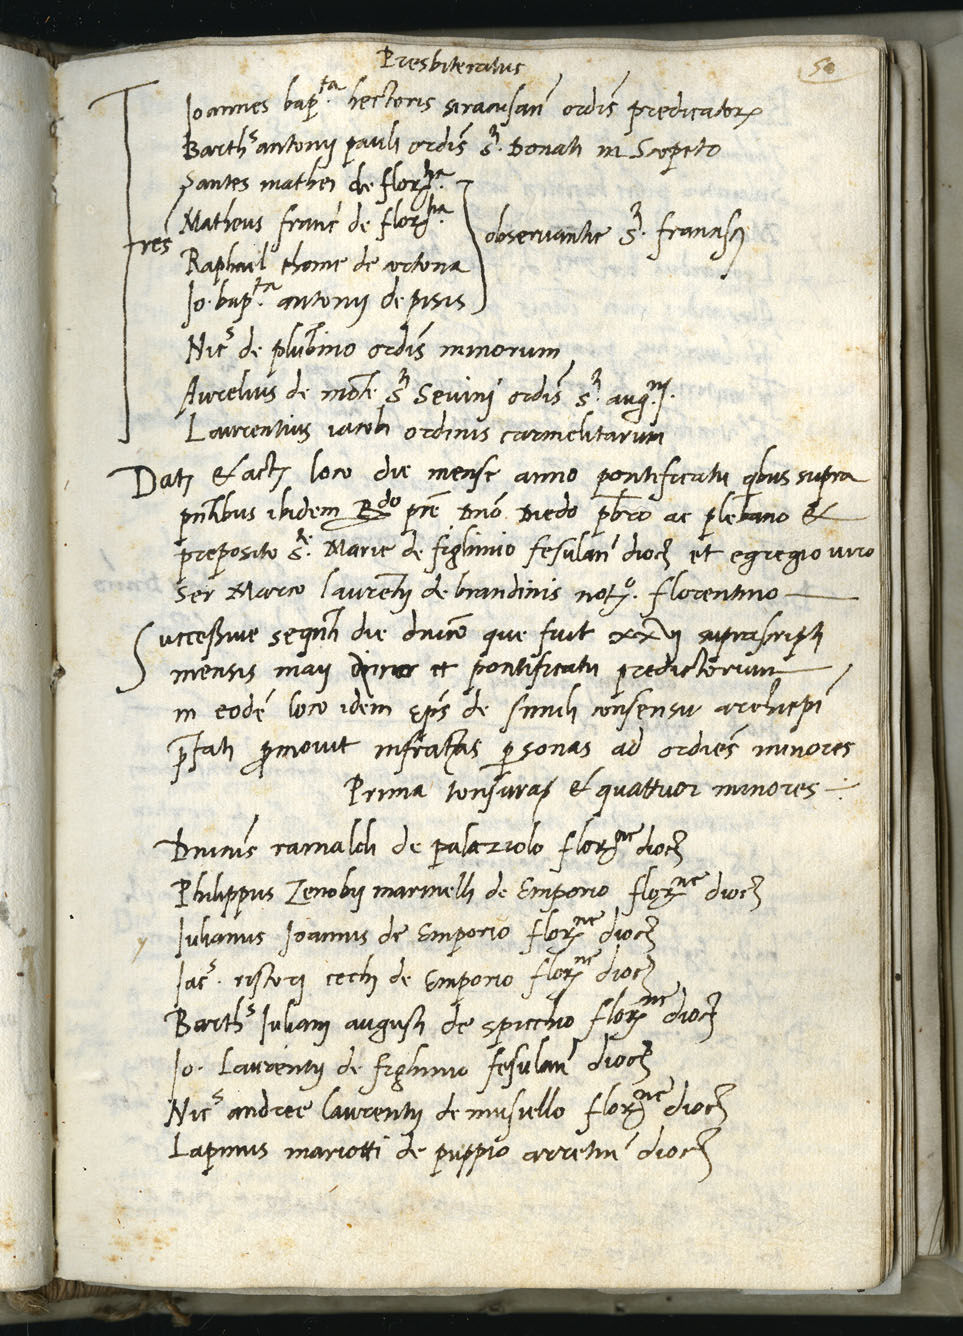 Presbiteratus
50
Ioannes bapᵗᵃ. hectoris siracusan̄ ordīs predicatoꝝ
Barthˢ antonij pauli ordīs sⁱ. Donati in Scopeto
Santes mathei de florⁿᵗⁱᵃ.
Matheus franc̄ de florⁿᵗⁱᵃ.
fres̄ observantie sⁱ. francisci
Raphael thome de cortona
Io. bapᵗᵃ. antonij de pisis
Nicˢ de plubino ordīs minorum
Aurelius de mōte sⁱ Sevini ordīs sⁱ. augⁿⁱ.
Laurentius iacobi ordinis carmelitarum
Datꝭ & actꝭ loco die mense anno pontificatu qbus supra
pn̄tibus ibidem Rᵈᵒ prē Dnō Diedo pb̄ro ac plebano &
preposito sᵉ. Marie de fighino fesulan̄ dioc̄ et egregio viro
Ser Marco laurentij de brandinis notº. florentino
Successive seqn̄ti die dn̄ico que fuit xxvj suprascripti
mensis maij et pontificatu predictorum
in eodē loco idem ep̄s de simili consensu archiepī
p̄fati promovit infractas personas ad ordiēs minores
Prima tonsura & quattuor minores
Dnicus rainaldi de palazziolo florⁿᵉ dioc̄
Philippus Zenobij marinelli de Emporio florⁿᵉ dioc̄
Iulianus Ioannis de Emporio florⁿᵉ dioc̄
Iacˢ. ristori cechi de Emporio florⁿᵉ dioc̄
Barthˢ Iuliani augusti de spicchio florⁿᵉ dioc̄
Io. Laurentij de fighino fesulan̄ dioc̄
Nicˢ andree laurentij de musiello florⁿᵉ dioc̄
Lapinus mariotti de puppio arretin̄ dioc̄